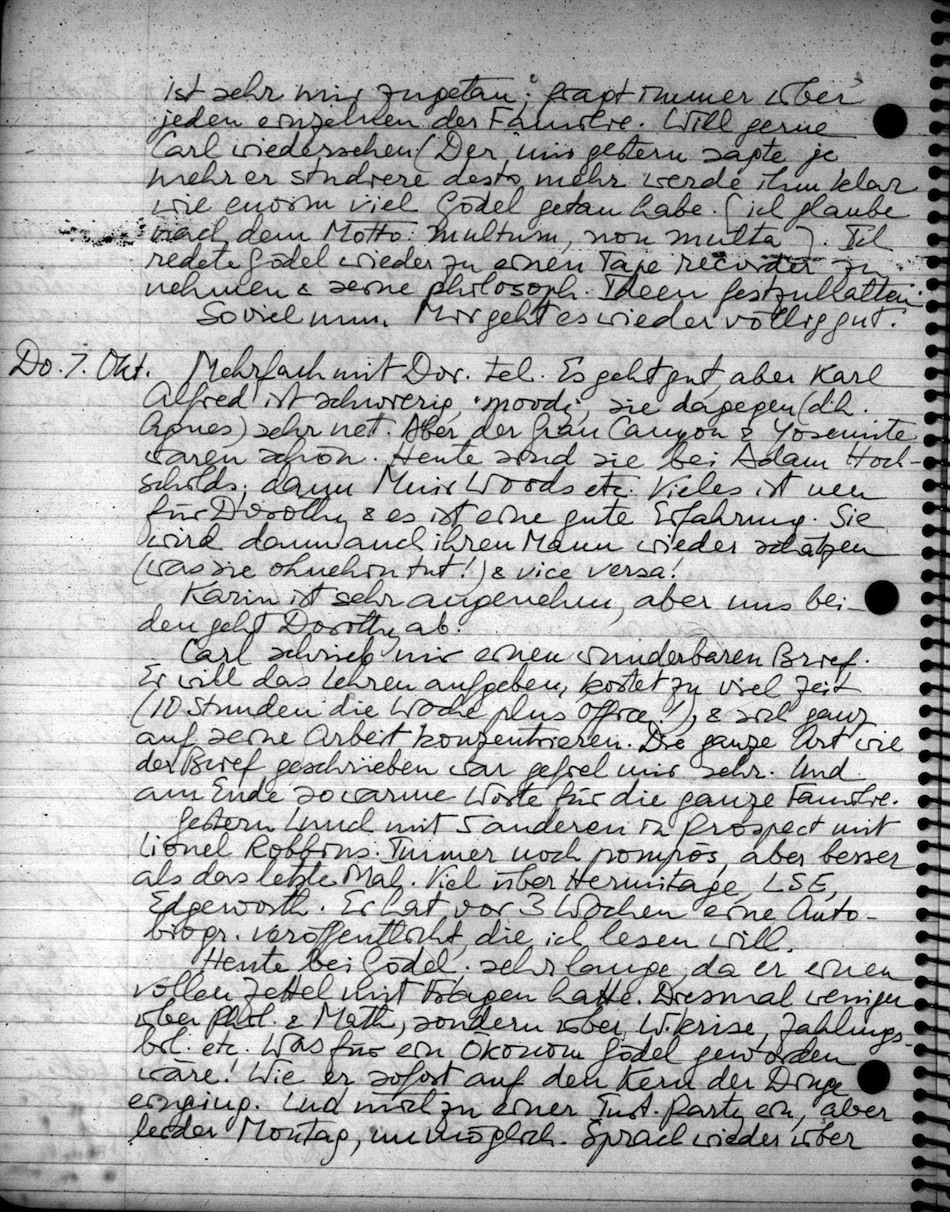 ist sehr mir zugetan; fragt immer über
jeden einzelnen der Familie. Will gerne
Carl wiedersehen (Der mir gestern sagte je
mehr er studiere desto mehr werde ihm klar
wie enorm viel Gödel getan habe. (ich glaube
nach dem Motto: multum, non multa). Ich
redete Gödel wieder zu einen Tape recorder zu
nehmen & seine philosoph. Ideen festzuhalten.
Soviel nun. Mir geht es wieder völlig gut.
Do. 7. Okt. Mehrfach mit Dor. tel. Es geht gut, aber Karl
Alfred ist schwierig, "moody", sie dagegen (d.h.
Agnes) sehr nett. Aber der Gran Canyon & Yosemite
waren schön. Heute sind sie bei Adam Hoch-
schilds; dann Muir Woods etc. Vieles ist neu
für Dorothy & es ist eine gute Erfahrung. Sie
wird dann auch ihren Mann wieder schätzen
(was sie ohnehin tut!) & vice versa!
Karin ist sehr angenehm, aber uns bei-
den geht Dorothy ab.
Carl schrieb mir einen wunderbaren Brief.
Er will das Lehren aufgeben, kostet zu viel Zeit
(10 Stunden die Woche plus office!), & sich ganz
auf seine Arbeit konzentrieren. Die ganze Art wie
der Brief geschrieben war gefiel mir sehr. Und
am Ende so warme Worte für die ganze Familie.
Gestern Lunch mit 5 anderen in Prospect mit
Lionel Robbins. Immer noch pompös, aber besser
als das letzte Mal. Viel über Hermitage, LSE,
Edgeworth. Er hat vor 3 Wochen eine Auto-
biogr. veröffentlicht, die ich lesen will.
Heute bei Gödel. sehr lange, da er einen
vollen Zettel mit Fragen hatte. Diesmal weniger
über Phil. & Math, sondern über W.krise, Zahlungs-
bil. etc. Was für ein Ökonom Gödel geworden
wäre! Wie er sofort auf den Kern der Dinge
einging. Lud mich zu einer Inst. Party ein, aber
leider Montag, unmöglich. Sprach wieder über